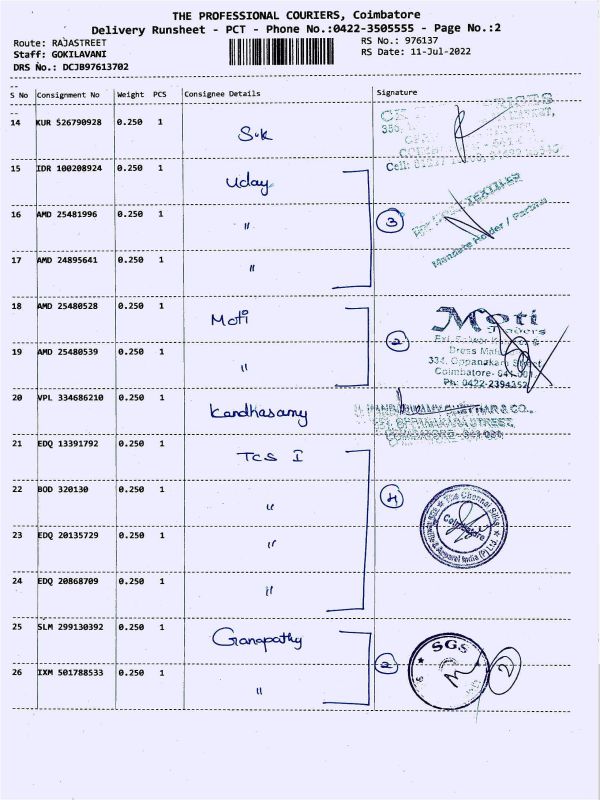 THE PROFESSIONAL COURIERS, Coimbatore
Delivery Runsheet - PCT - Phone No.:0422-3505555 - Page No.:2
Route: RAJASTREET
RS No.: 976137
Staff: GOKILAVANI
RS Date: 11-Jul-2022
DRS No.: DCJB97613702
S No Consignment No Weight PCS Consignee Details Signature
14 KUR 526790928 0.250 1 Suk
15 IDR 100208924 0.250 1 Uday
16 AMD 25481996 0.250 1 "
3
17 AMD 24895641 0.250 1 "
TEXTILES
Mandate Holder / Partner
18 AMD 25480528 0.250 1 Moti
2
Moti
Traders
19 AMD 25480539 0.250 1 "
Dress
334, Oppanakara Street
Coimbatore- 641 001.
Ph: 0422-2394352
20 VPL 334686210 0.250 1 Kandhasamy
CHETTIAR & CO.,
STREET,
COIMBATORE - 641 001
21 EDQ 13391792 0.250 1 TCS I
22 BOD 320130 0.250 1 "
4
The Chennai Silks
Coimbatore
Apparel India (P) Ltd.
23 EDQ 20135729 0.250 1 "
24 EDQ 20868709 0.250 1 "
25 SLM 299130392 0.250 1 Ganapathy
2
SGS
2
26 IXM 501788533 0.250 1 "